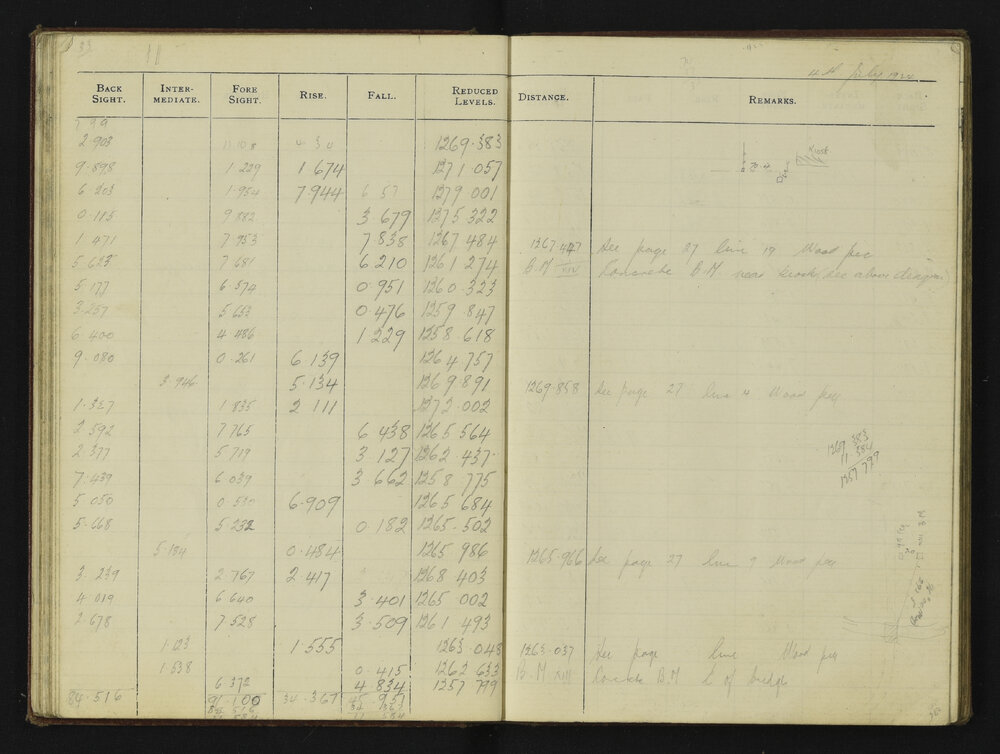 33
4th July 1924
BACK SIGHT. INTER-MEDIATE. FORE SIGHT. RISE. FALL. REDUCED LEVELS. DISTANCE. REMARKS.
2.903 1269.383
9.898 1.229 1.674 1271.057
6.203 1.954 7.944 1279.001
Kiosk
0.115 9.882 3.679 1275.322
1.471 7.953 7.838 1267.484 1267.447 See page 27 line 19 Wood peg
5.623 7.681 6.210 1261.274 B.M XIV Concrete B.M near kiosk (see above diagram)
5.177 6.574 0.951 1260.323
3.257 5.653 0.476 1259.847
6.400 4.486 1.229 1258.618
9.080 0.261 6.139 1264.757
3.946 5.134 1269.891 1269.858 See page 27 line 4 Wood peg
1.327 1.835 2.111 1272.002
2.592 7.765 6.438 1265.564
2.377 5.719 3.127 1262.437
1269.383
11.584
1257.799
7.439 6.039 3.662 1258.775
5.050 0.530 6.909 1265.684
5.668 5.232 0.182 1265.502
5.184 0.484 1265.986 1265.966 See page 27 line 7 Wood peg
3.239 2.767 2.417 1268.403
4.019 6.640 3.401 1265.002
2.678 7.528 3.509 1261.493
1.123 1.555 1263.048 1263.037 See page line Wood peg
1.538 0.415 1262.633
6.372 4.834 1257.799 B.M XIII Concrete B.M L of bridge
84.516 91.100 34.367 45.951
84.516 34.367
11.584